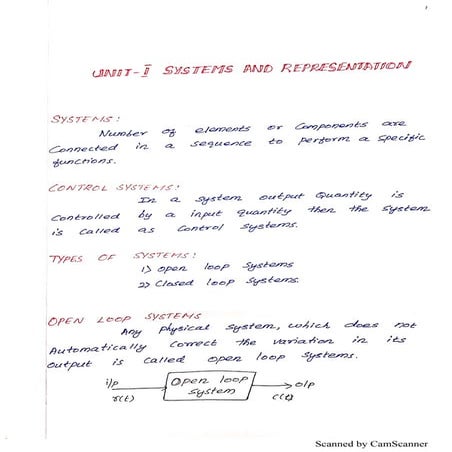 UNIT-I SYSTEMS AND REPRESENTATION
SYSTEMS:
Number of elements or Components are
Connected in a sequence to perform a specific
functions.
CONTROL SYSTEMS:
In a system output Quantity is
Controlled by a input quantity then the system
is called as control systems.
TYPES OF SYSTEMS:
1) open loop systems
2) Closed loop systems.
OPEN LOOP SYSTEMS
Any physical system, which does not
Automatically correct the variation in its
output is called open loop systems.
i/p Open loop o/p
r(t) system c(t)
Scanned by CamScanner